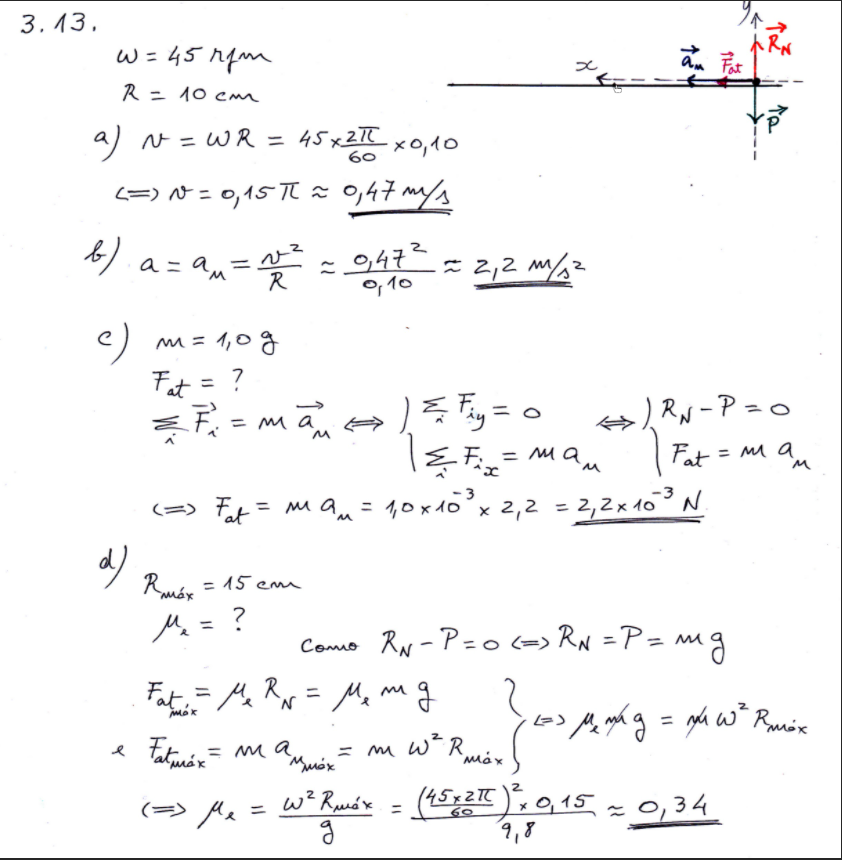 3.13.
y
R⃗_N
x
a⃗_n
F⃗_at
P⃗
ω = 45 rpm
R = 10 cm
a) v = ωR = 45 × 2π/60 × 0,10
<=> v = 0,15π ≈ 0,47 m/s
b) a = a_n = v²/R ≈ 0,47²/0,10 ≈ 2,2 m/s²
c) m = 1,0 g
F_at = ?
∑_i F⃗_i = m a⃗_n <=> { ∑_i F_iy = 0 <=> { R_N - P = 0
∑_i F_ix = m a_n F_at = m a_n
<=> F_at = m a_n = 1,0×10⁻³ × 2,2 = 2,2×10⁻³ N
d)
R_máx = 15 cm
μ_e = ?
Como R_N - P = 0 <=> R_N = P = mg
F_at máx = μ_e R_N = μ_e m g
e F_at máx = m a_n máx = m ω² R_máx } <=> μ_e m g = m ω² R_máx
<=> μ_e = ω² R_máx / g = (45×2π/60)² × 0,15 / 9,8 ≈ 0,34